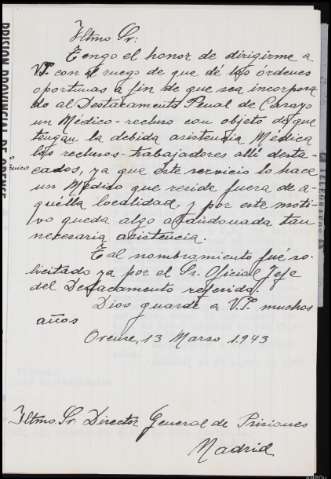 Iltmo Sr.
Tengo el honor de dirigirme a
V.I. con el ruego de que dé las órdenes
oportunas a fin de que sea incorpora
do al Destacamento Penal de Casayo
un Médico-recluso con objeto de que
tengan la debida asistencia Médica
los reclusos-trabajadores alli desta-
cados, ya que este servicio lo hace
un Médico que reside fuera de a-
quella localidad, y por este moti-
vo queda algo abandonada tan
necesaria asistencia.
Tal nombramiento fué so-
licitado ya por el Sr. Oficial Jefe
del Destacamento referido.
Dios guarde a V.I. muchos
años
Orense, 13 Marzo 1.943
Iltmo Sr Director General de Prisiones
Madrid
PRISION PROVINCIAL DE